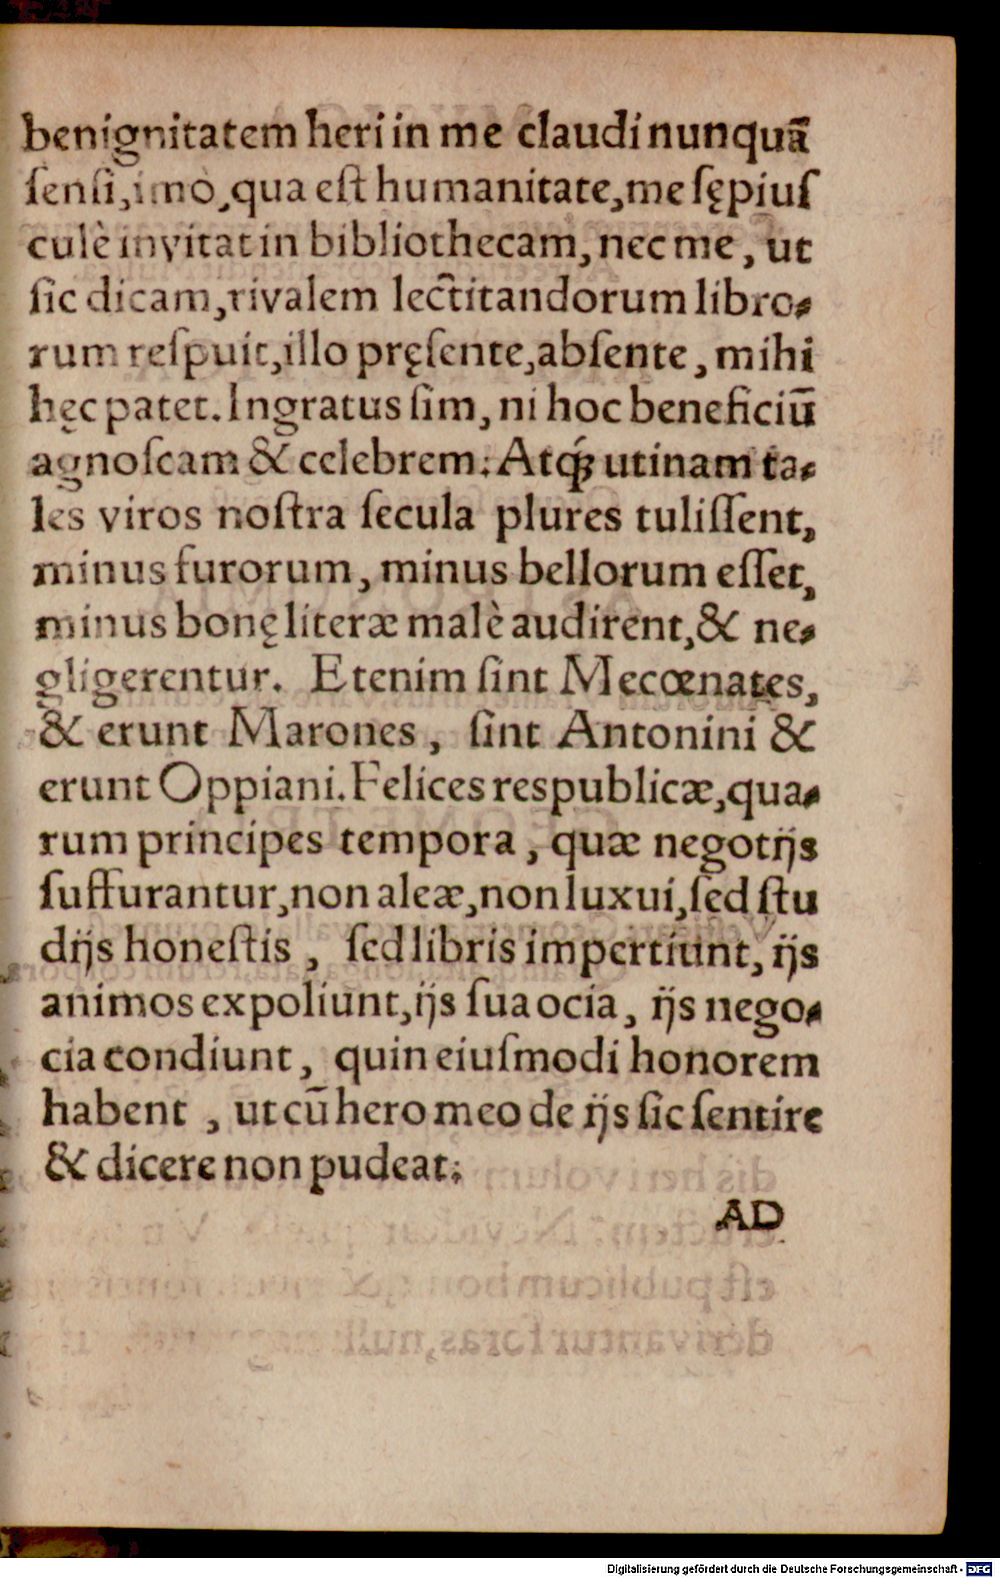 benignitatem heri in me claudi nunquã
ſenſi, imò, qua eſt humanitate, me ſępiuſ
culè invitat in bibliothecam, nec me, ut
ſic dicam, rivalem lectitandorum libro-
rum reſpuit, illo pręſente, abſente, mihi
hęc patet. Ingratus ſim, ni hoc beneficiũ
agnoſcam & celebrem. Atq́; utinam ta-
les viros noſtra ſecula plures tuliſſent,
minus furorum, minus bellorum eſſet,
minus bonę literæ malè audirent, & ne-
gligerentur. Etenim ſint Mecœnates,
& erunt Marones, ſint Antonini &
erunt Oppiani. Felices respublicæ, qua-
rum principes tempora, quæ negotijs
ſuffurantur, non aleæ, non luxui, ſed ſtu
dijs honeſtis, ſed libris impertiunt, ijs
animos expoliunt, ijs ſua ocia, ijs nego-
cia condiunt, quin eiuſmodi honorem
habent, ut cũ hero meo de ijs ſic ſentire
& dicere non pudeat.
AD
Digitalisierung gefördert durch die Deutsche Forschungsgemeinschaft - DFG